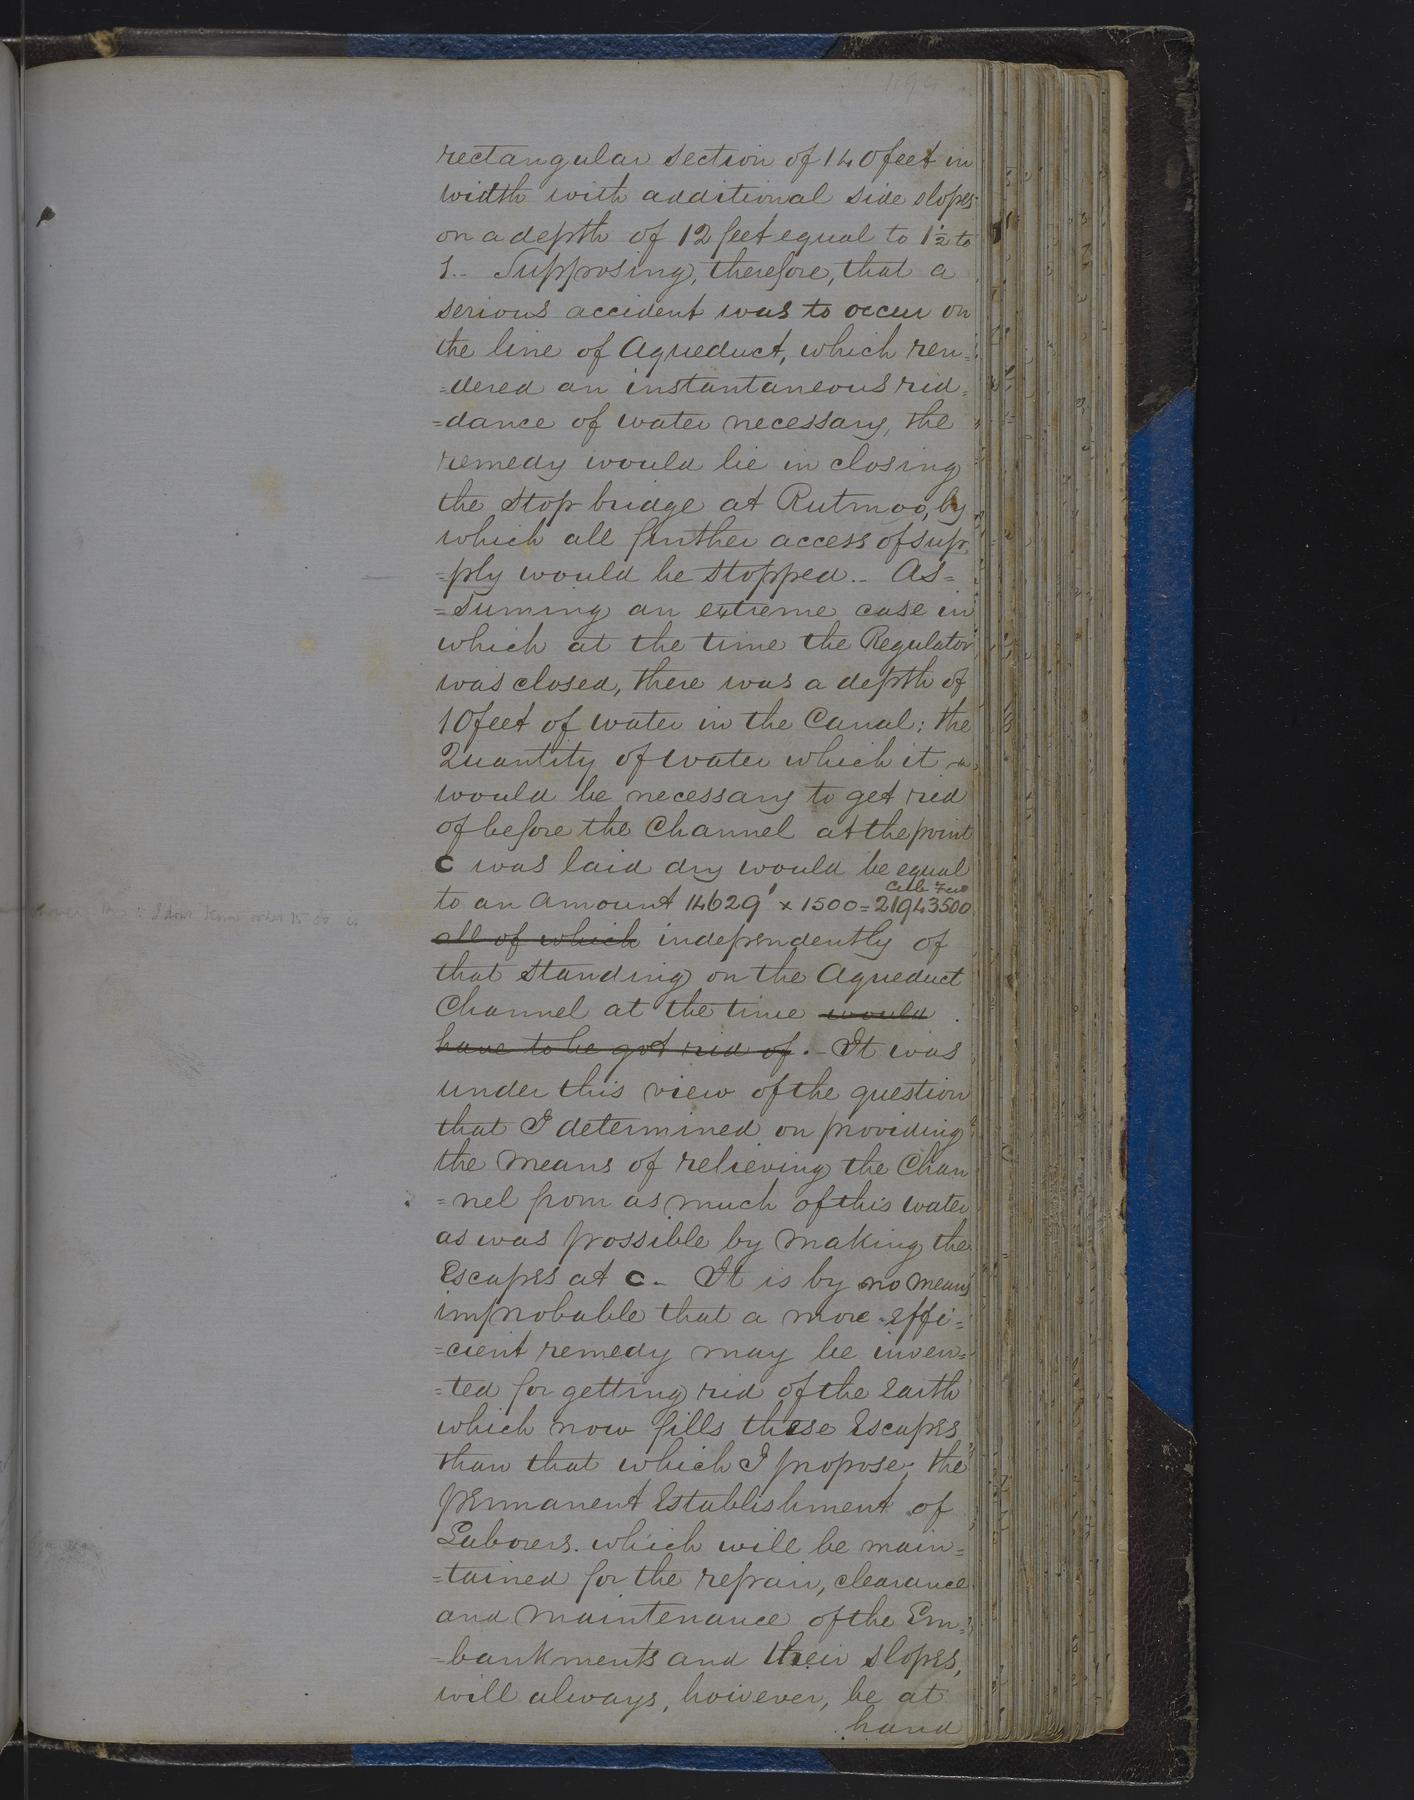 rectangular section of 140 feet in
width with additional side slopes
on a depth of 12 feet equal to 1½ to
1.- Supposing, therefore, that a
serious accident was to occur on
the line of Aqueduct, which ren=
=dered an instantaneous rid=
=dance of water necessary, the
remedy would lie in closing
the stop bridge at Rutmoo, by
which all further access of sup
=ply would be stopped.- As=
=suming an extreme case in
which at the time the Regulator
was closed, there was a depth of
10 feet of water in the Canal; the
Quantity of water which it
would be necessary to get rid
of before the Channel at the point
C was laid dry would be equal
Cub Feet
to an amount 14629' x 1500 = 21943500
all of which independently of
that standing on the Aqueduct
Channel at the time would
have to be got rid of.- It was
under this view of the question
that I determined on providing
the means of relieving the Chan
=nel from as much of this water
as was possible by making the
Escapes at C.- It is by no means
improbable that a more effi=
=cient remedy may be inven=
=ted for getting rid of the earth
which now fills these Escapes
than that which I propose; the
permanent Establishment of
Laborers. which will be main=
=tained for the repair, clearance
and maintenance of the Em=
=bankments and their slopes,
will always, however, be at
hand